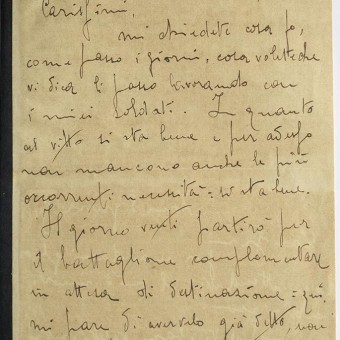 Carissimi,
mi chiedete cosa fo,
come passo i giorni, cosa volete che
vi dica li passo lavorando con
i miei soldati. In quanto
al vitto si sta bene e per adesso
non mancono anche le più
occorrenti necessità = si sta bene.
Il giorno venti partirò per
il battaglione complementare
in attesa di destinazione = qui
mi pare di avervelo già detto, non